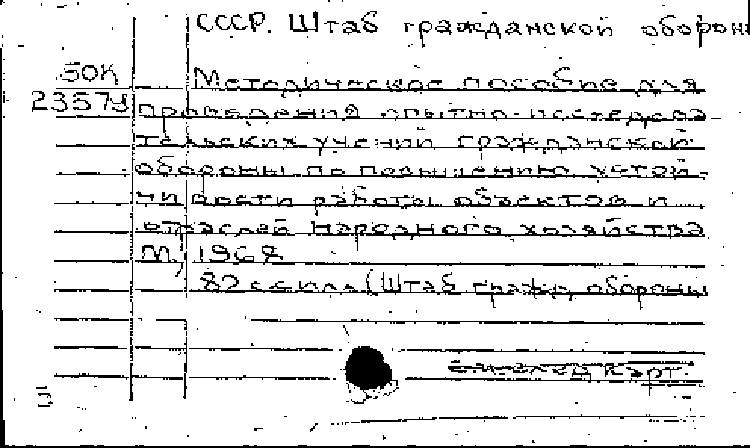 СССР. Штаб гражданской оборон
50К Методическое пособие для
проведения опытно-исследова
тельских учений гражданской
обороны по повышению устой-
чивости работы объектов и
отраслей народного хозяйства
М, 1968
82 с с илл (Штаб гражд обороны
карт.